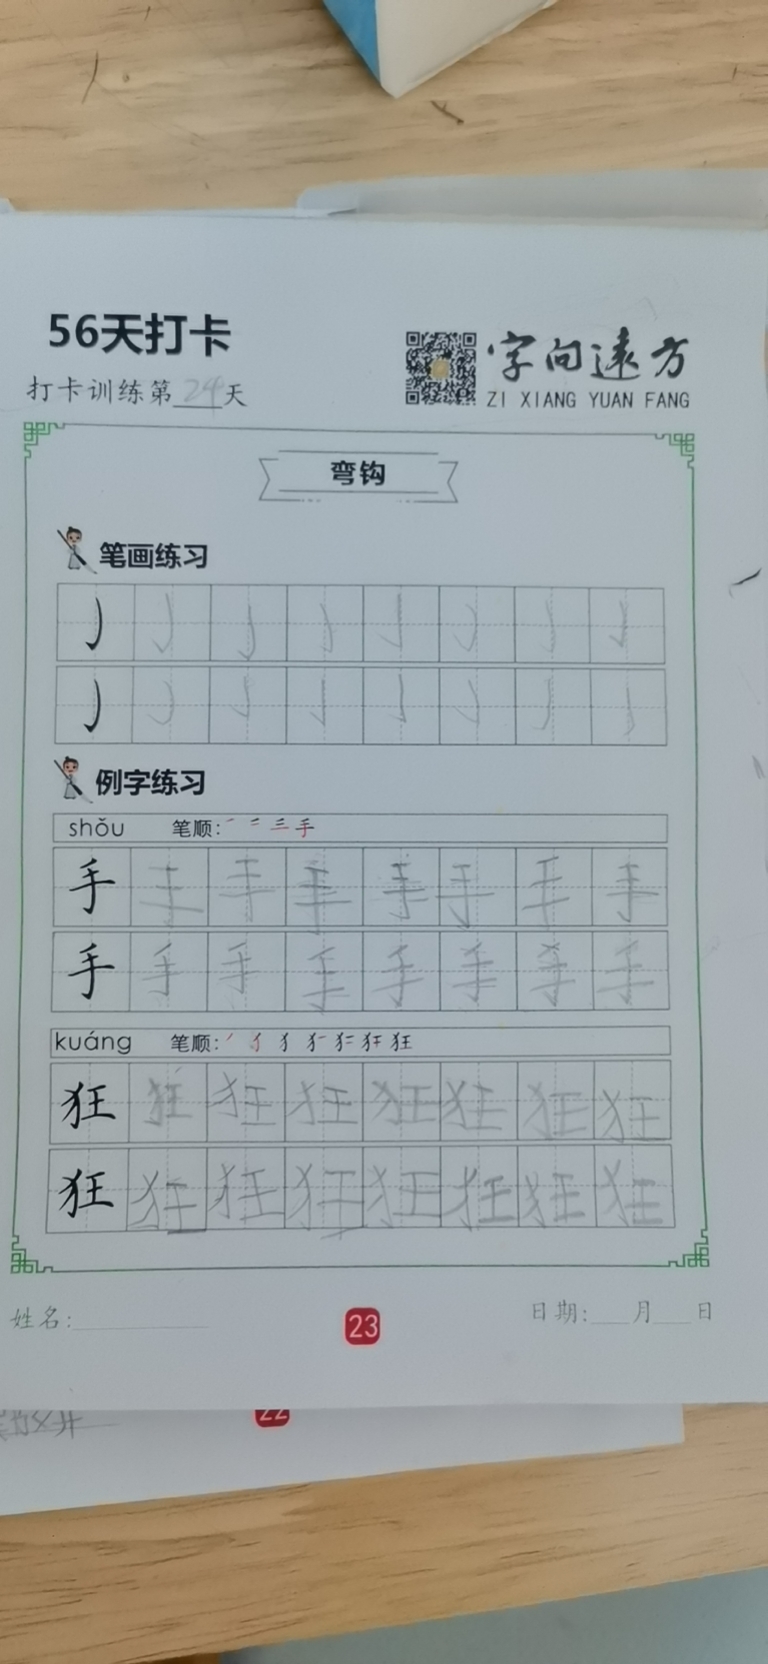 56天打卡
打卡训练第24天
字向远方
ZI XIANG YUAN FANG
弯钩
笔画练习
例字练习
shǒu 笔顺: 手
手 手 手 手 手 手 手 手
手 手 手 手 手 手 手 手
kuáng 笔顺: 狂
狂 狂 狂 狂 狂 狂 狂 狂
狂 狂 狂 狂 狂 狂 狂 狂
姓名: 23 日期: 月 日
22